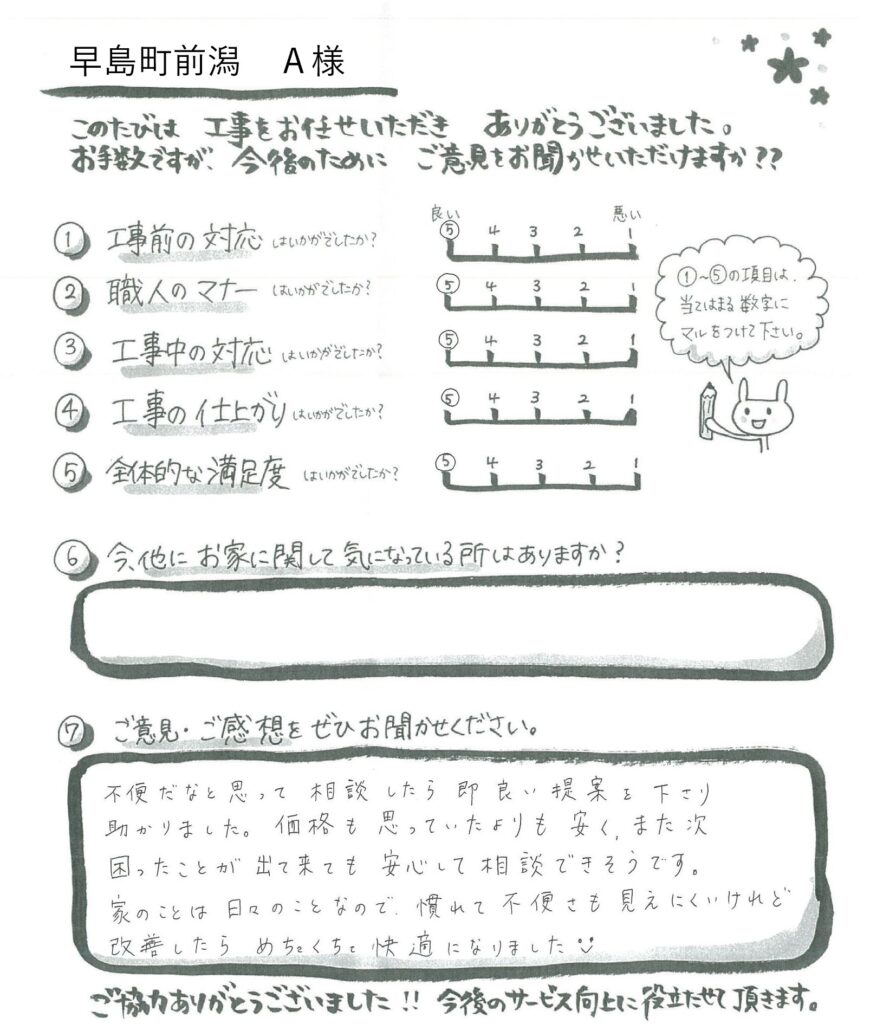 早島町前潟　A様
このたびは 工事をお任せいただき ありがとうございました。
お手数ですが、今後のために ご意見をお聞かせいただけますか??
良い 悪い
① 工事前の対応 はいかがでしたか? ⑤ 4 3 2 1
② 職人のマナー はいかがでしたか? ⑤ 4 3 2 1
③ 工事中の対応 はいかがでしたか? ⑤ 4 3 2 1
④ 工事の仕上がり はいかがでしたか? ⑤ 4 3 2 1
⑤ 全体的な満足度 はいかがでしたか? ⑤ 4 3 2 1
①~⑤の項目は、
当てはまる数字に
マルをつけて下さい。
⑥ 今、他に お家に関して 気になっている所はありますか?
⑦ ご意見・ご感想をぜひお聞かせください。
不便だなと思って 相談したら 即 良い 提案を 下さり
助かりました。価格も 思っていたよりも 安く、また次
困ったことが 出て来ても 安心して 相談できそうです。
家のことは 日々のことなので、慣れて 不便さも 見えにくいけれど
改善したら めちゃくちゃ 快適になりました
ご協力ありがとうございました!! 今後のサービス向上に役立たせて頂きます。